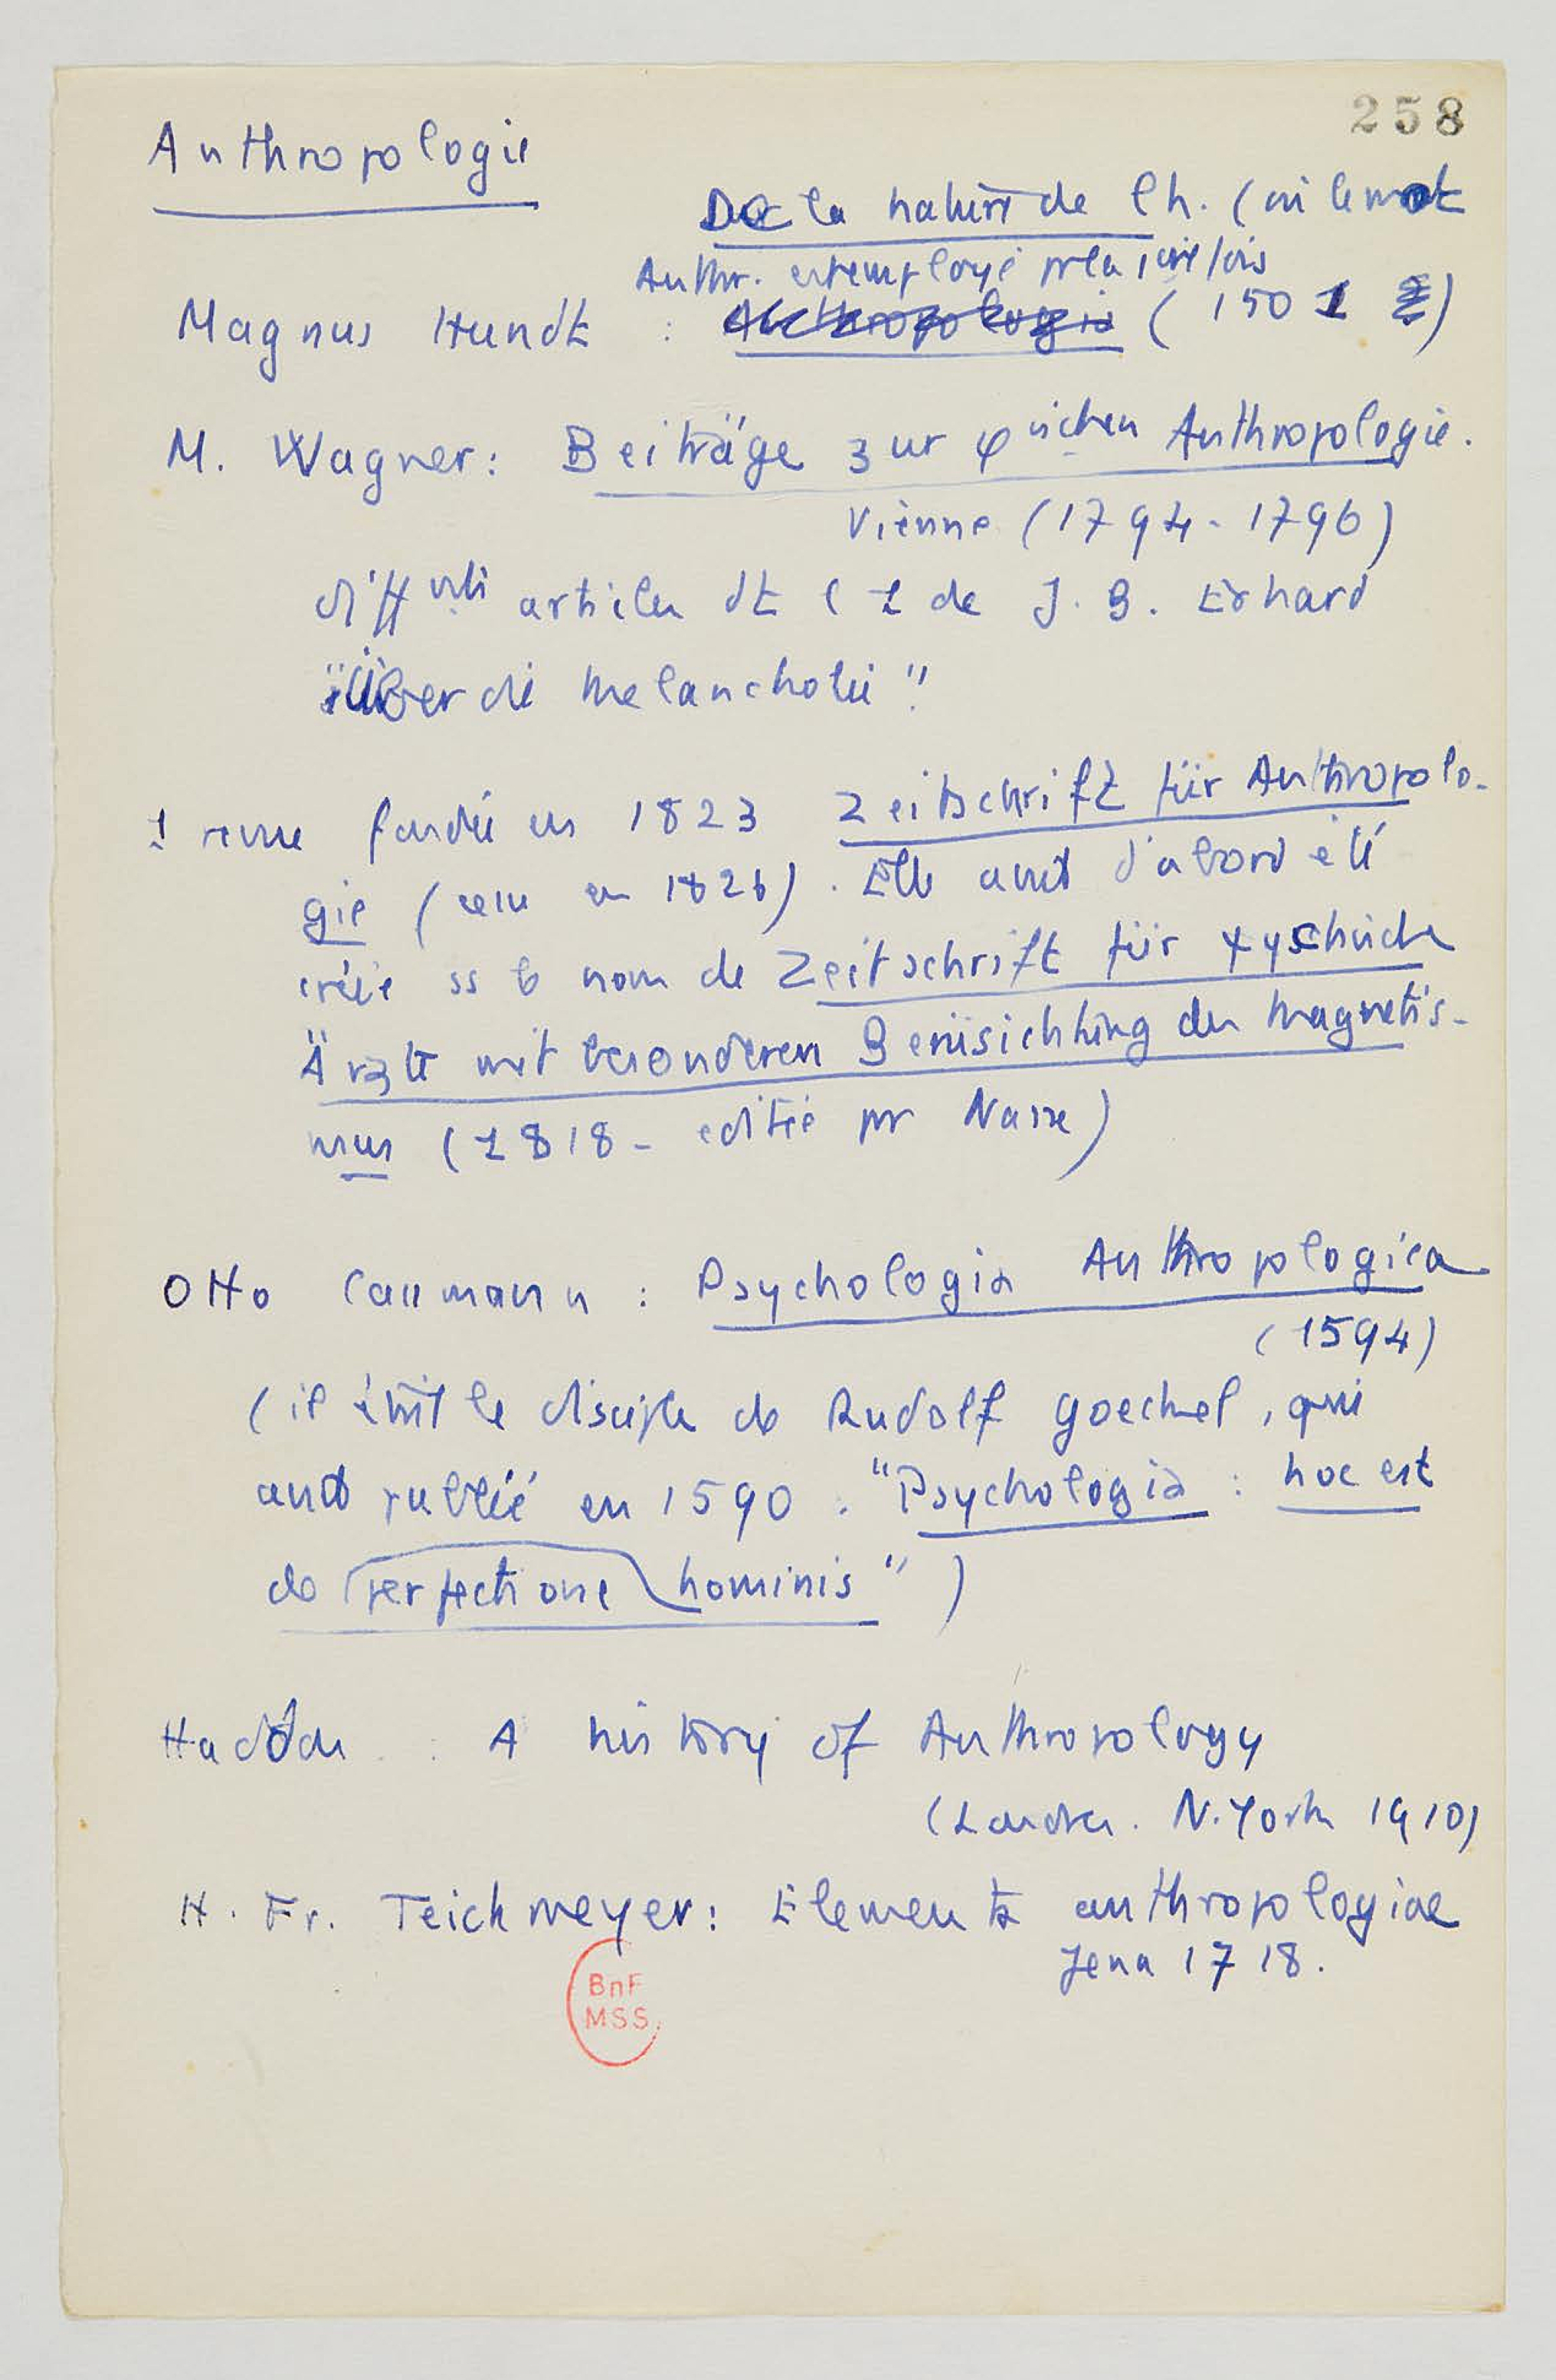 258
Anthropologie
De la nature de l'h. (où le mot
Anthr. est employé pr la 1ère fois
Magnus Hundt : Anthropologia (1501)
M. Wagner: Beiträge zur φischen Anthropologie.
Vienne (1794-1796)
diffnts articles dt (1 de J. B. Erhard
"Über die Melancholie"
1 revue fondée en 1823 Zeitschrift für Anthropolo-
gie (cesse en 1826). Elle avait d'abord été
créée ss le nom de Zeitschrift für ψyschische
Ärzte mit besonderen Berüsichtung des Magnetis-
mus (1818 - editée pr Nasse)
Otto Cassmann : Psychologia Anthropologica
(1594)
(il était le disciple de Rudolf Goeckel, qui
avait publié en 1590 : "Psychologia : hoc est
de perfectione hominis")
Haddon : A history of Anthropology
(London. N. York 1910)
H. Fr. Teichmeyer: Elementa anthropologiae
Jena 1718.
BnF
MSS